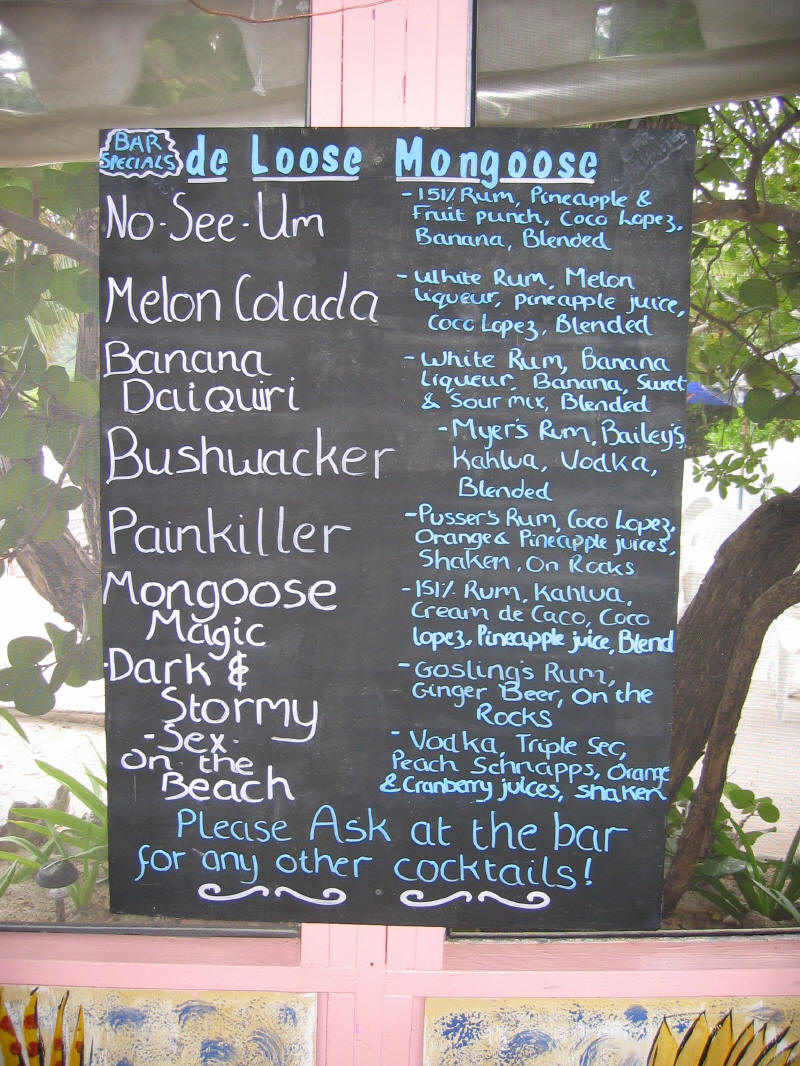 BAR
SPECIALS
de Loose Mongoose
No-See-Um
-151% Rum, Pineapple &
Fruit punch, Coco Lopez,
Banana, Blended
Melon Colada
-White Rum, Melon
liqueur, pineapple juice,
Coco Lopez, Blended
Banana
Daiquiri
-White Rum, Banana
Liqueur, Banana, Sweet
& Sour mix, Blended
Bushwacker
-Myer's Rum, Bailey's,
Kahlua, Vodka,
Blended
Painkiller
-Pusser's Rum, Coco Lopez,
Orange & Pineapple juices,
Shaken, On Rocks
Mongoose
Magic
-151% Rum, Kahlua,
Cream de Caco, Coco
lopez, Pineapple juice, Blend
Dark &
Stormy
-Gosling's Rum,
Ginger Beer, On the
Rocks
-Sex-
on the
Beach
-Vodka, Triple Sec,
Peach Schnapps, Orange
& Cranberry juices, shaken
Please Ask at the bar
for any other cocktails!